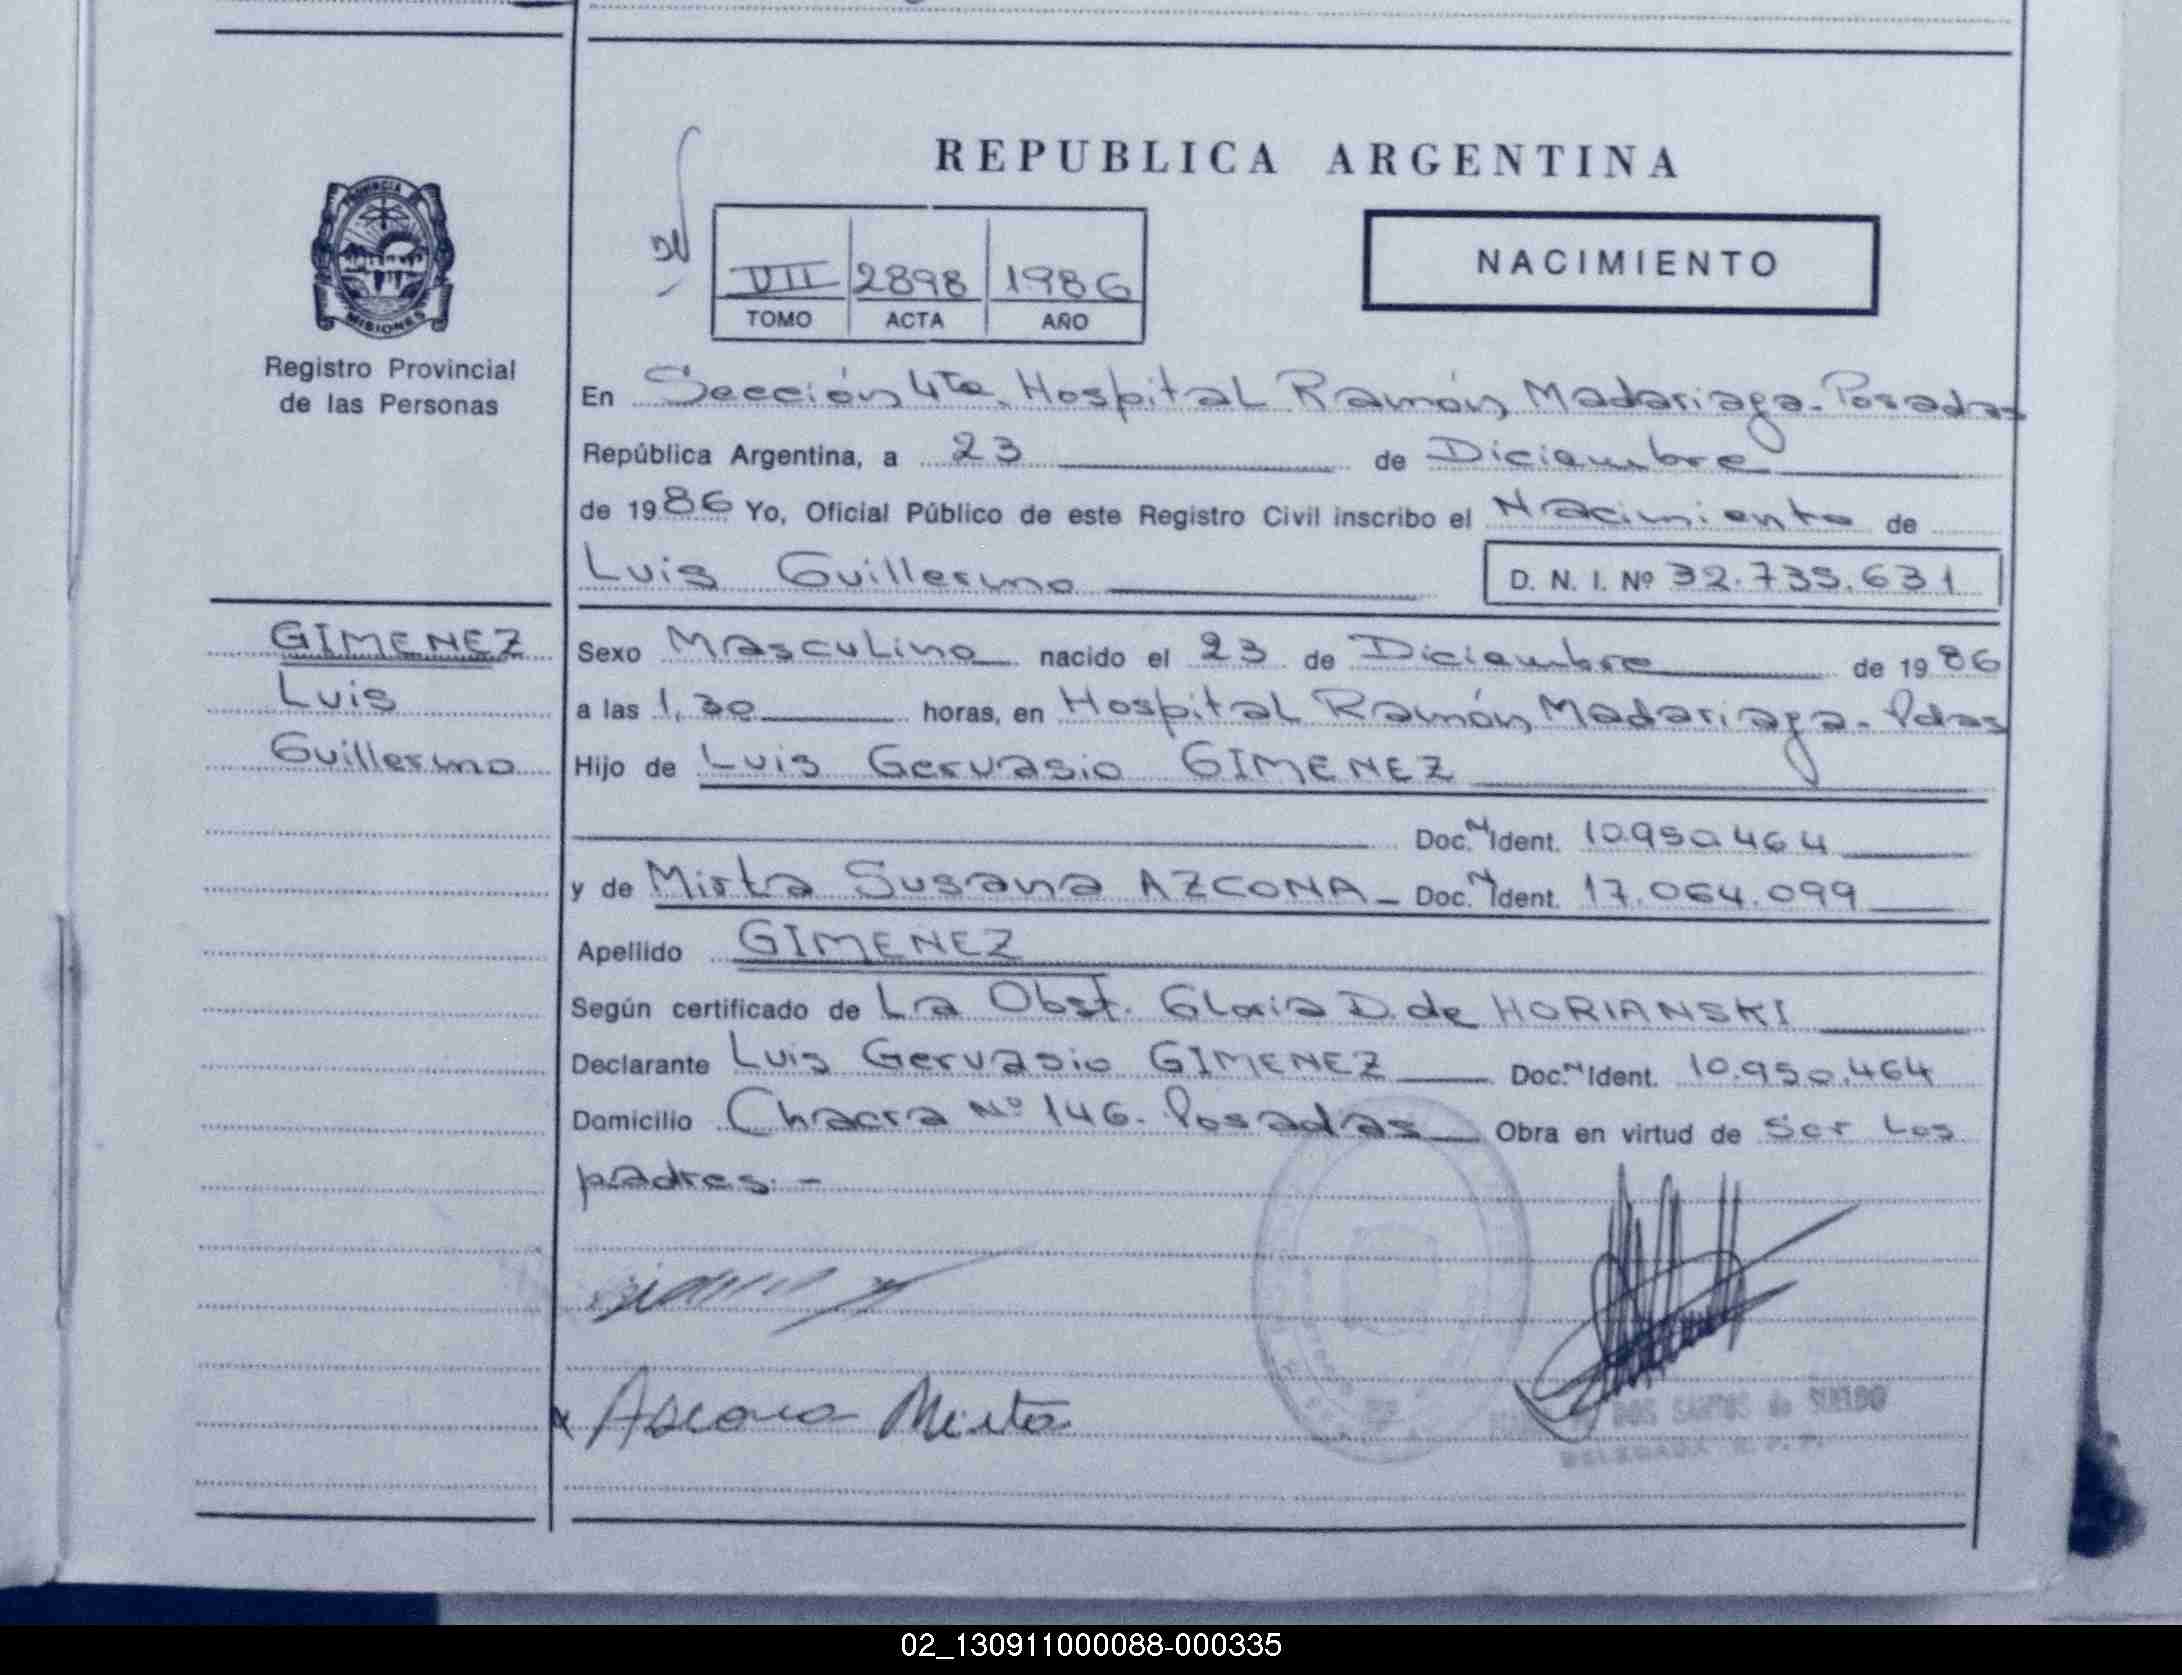 REPUBLICA ARGENTINA
PROVINCIA
MISIONES
Registro Provincial
de las Personas
VII 2898 1986
TOMO ACTA AÑO
NACIMIENTO
En Sección 4ta. Hospital Ramón Madariaga - Posadas
República Argentina, a 23 de Diciembre
de 1986 Yo, Oficial Público de este Registro Civil inscribo el Nacimiento de
Luis Guillermo D. N. I. Nº 32.735.631
GIMENEZ
Luis
Guillermo
Sexo Masculino nacido el 23 de Diciembre de 1986
a las 1,30 horas, en Hospital Ramón Madariaga - Pdas
Hijo de Luis Gervasio GIMENEZ
Doc. N Ident. 10.950.464
y de Mirta Susana AZCONA - Doc. N Ident. 17.064.099
Apellido GIMENEZ
Según certificado de La Obst. Gloria D. de HORIANSKI
Declarante Luis Gervasio GIMENEZ Doc. N Ident. 10.950.464
Domicilio Chacra Nº 146 - Posadas Obra en virtud de Ser Los
padres. -
Ascona Mirta
DOS SANTOS de SUELDO
DELEGADA R. P. P.
02_130911000088-000335